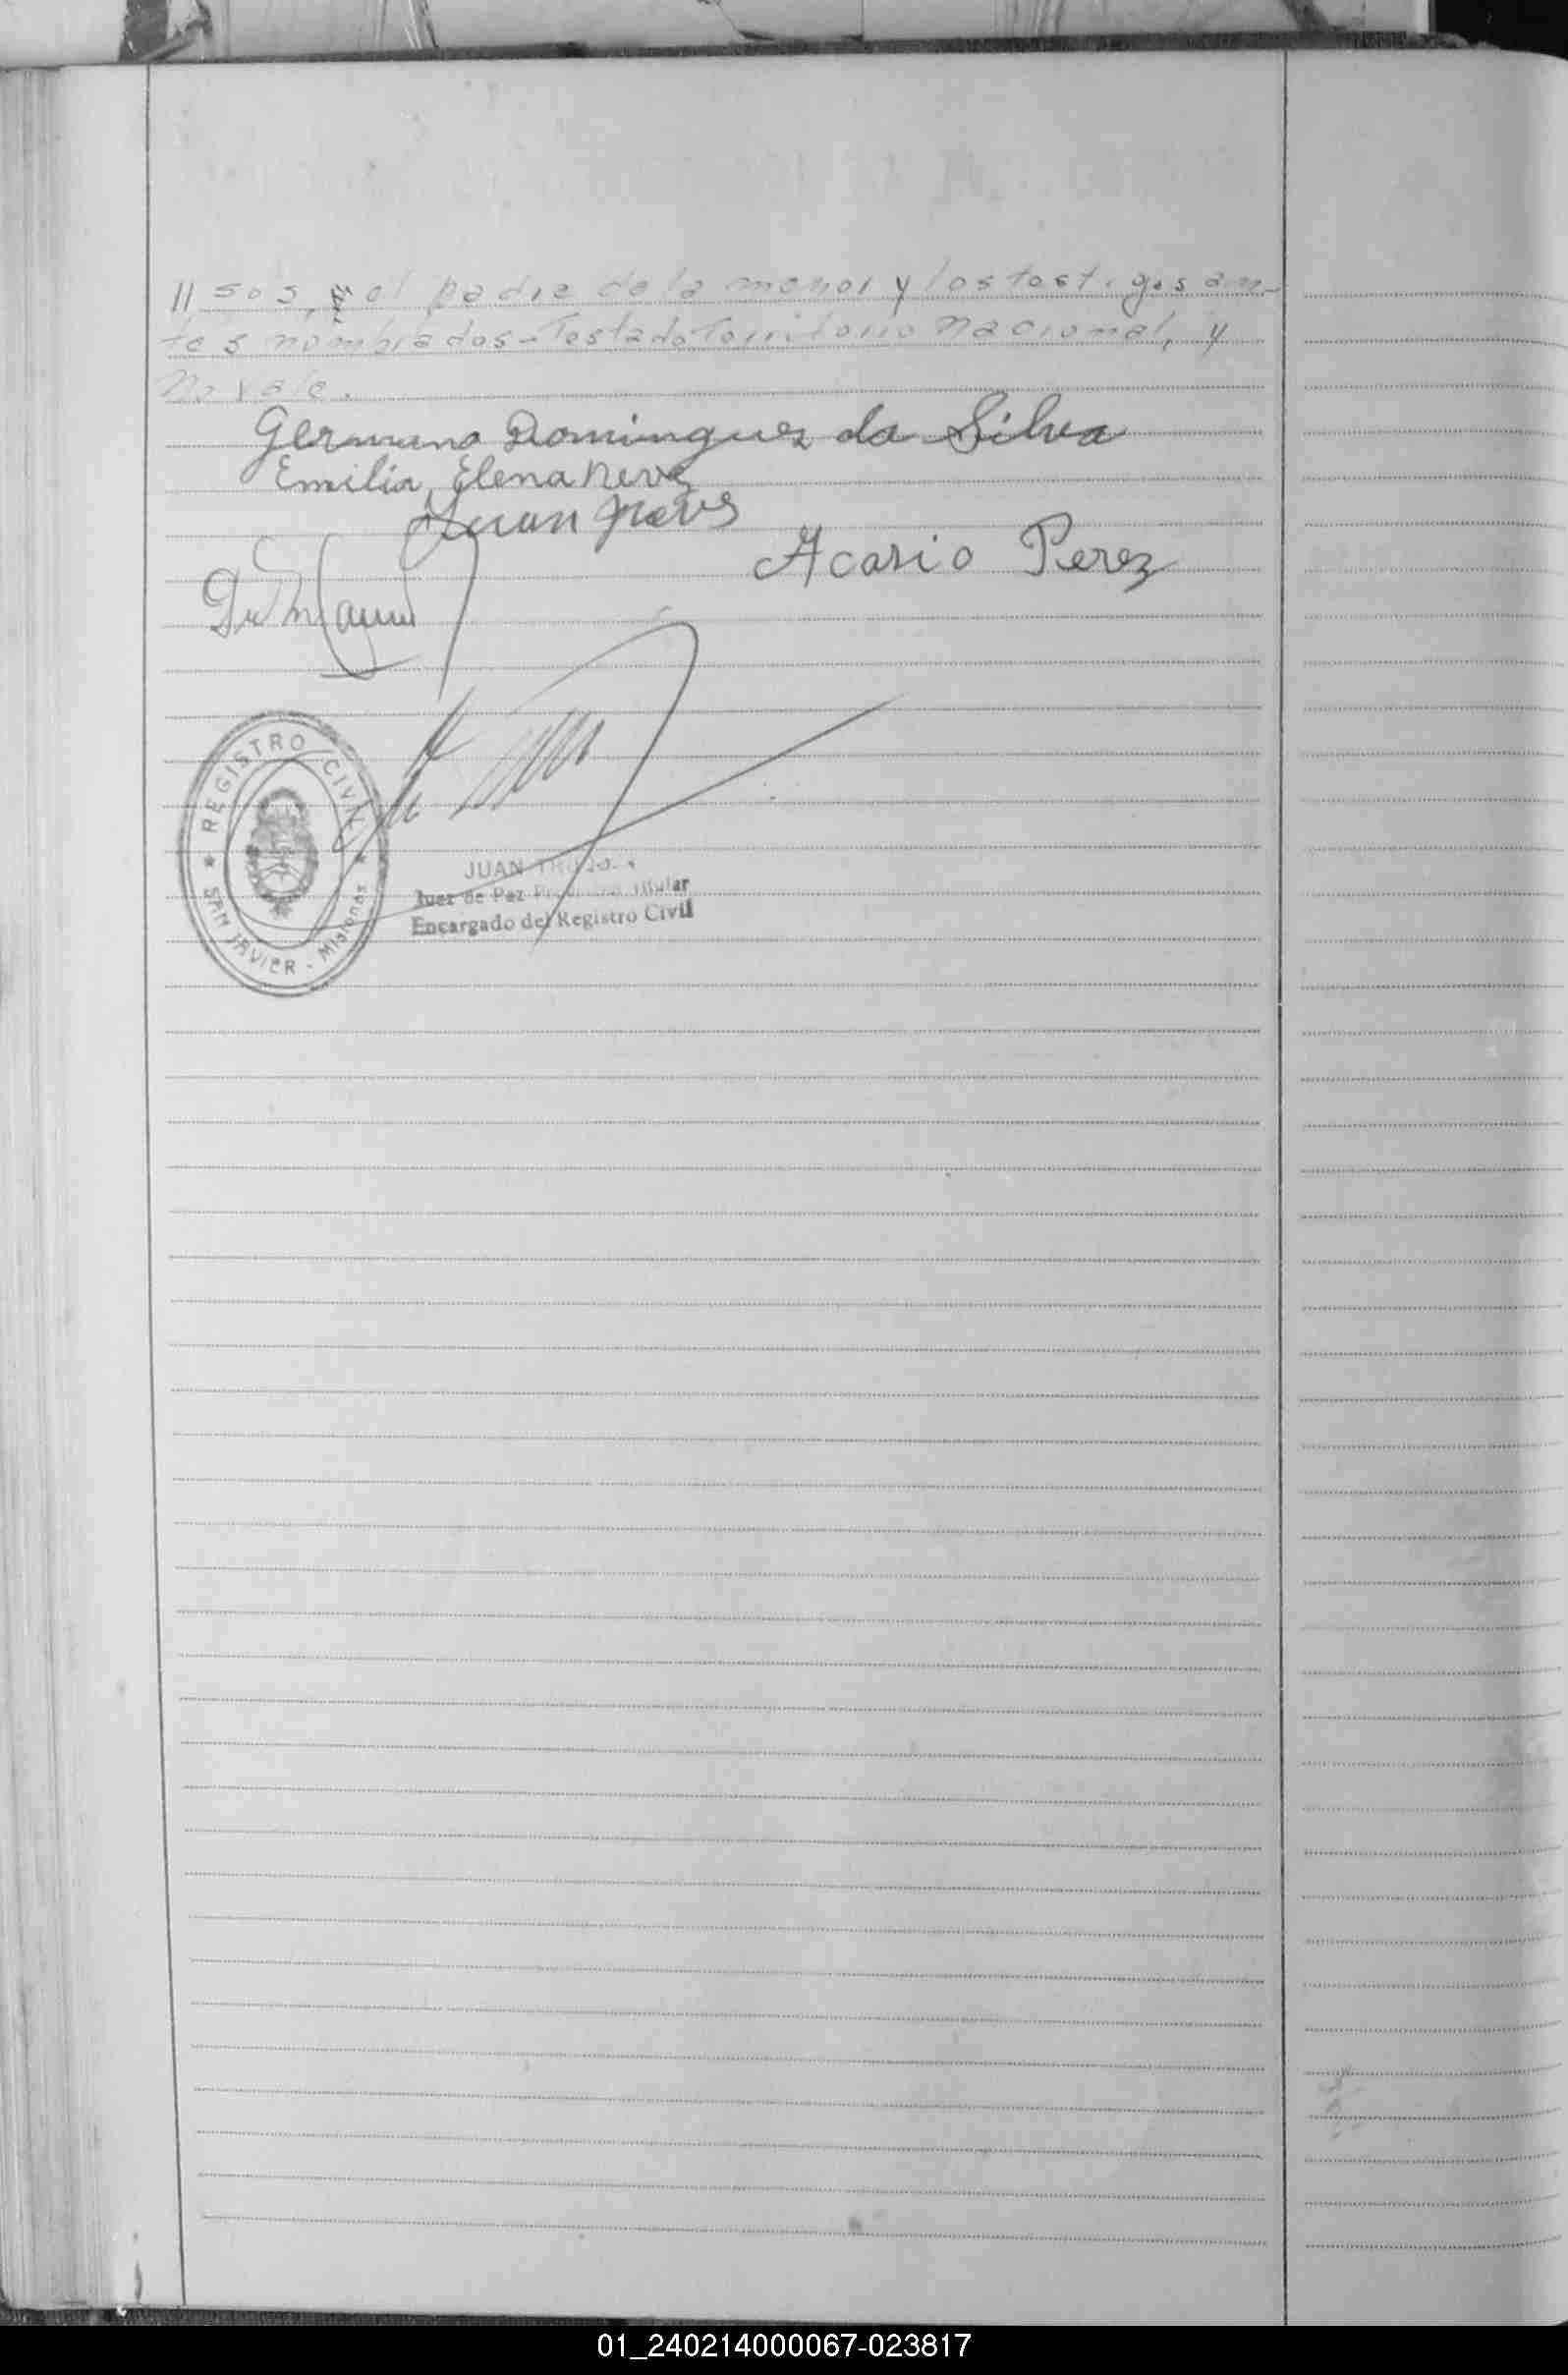 // sos, el padre de la menor y los testigos an-
tes nombrados - Testado Territorio Nacional, y
no vale.
Germano Domingues da Silva
Emilia Elena Neves
Juan Neves
Acasio Perez
REGISTRO CIVIL
SAN JAVIER - Misiones
JUAN
Juez de Paz Titular
Encargado del Registro Civil
01_240214000067-023817